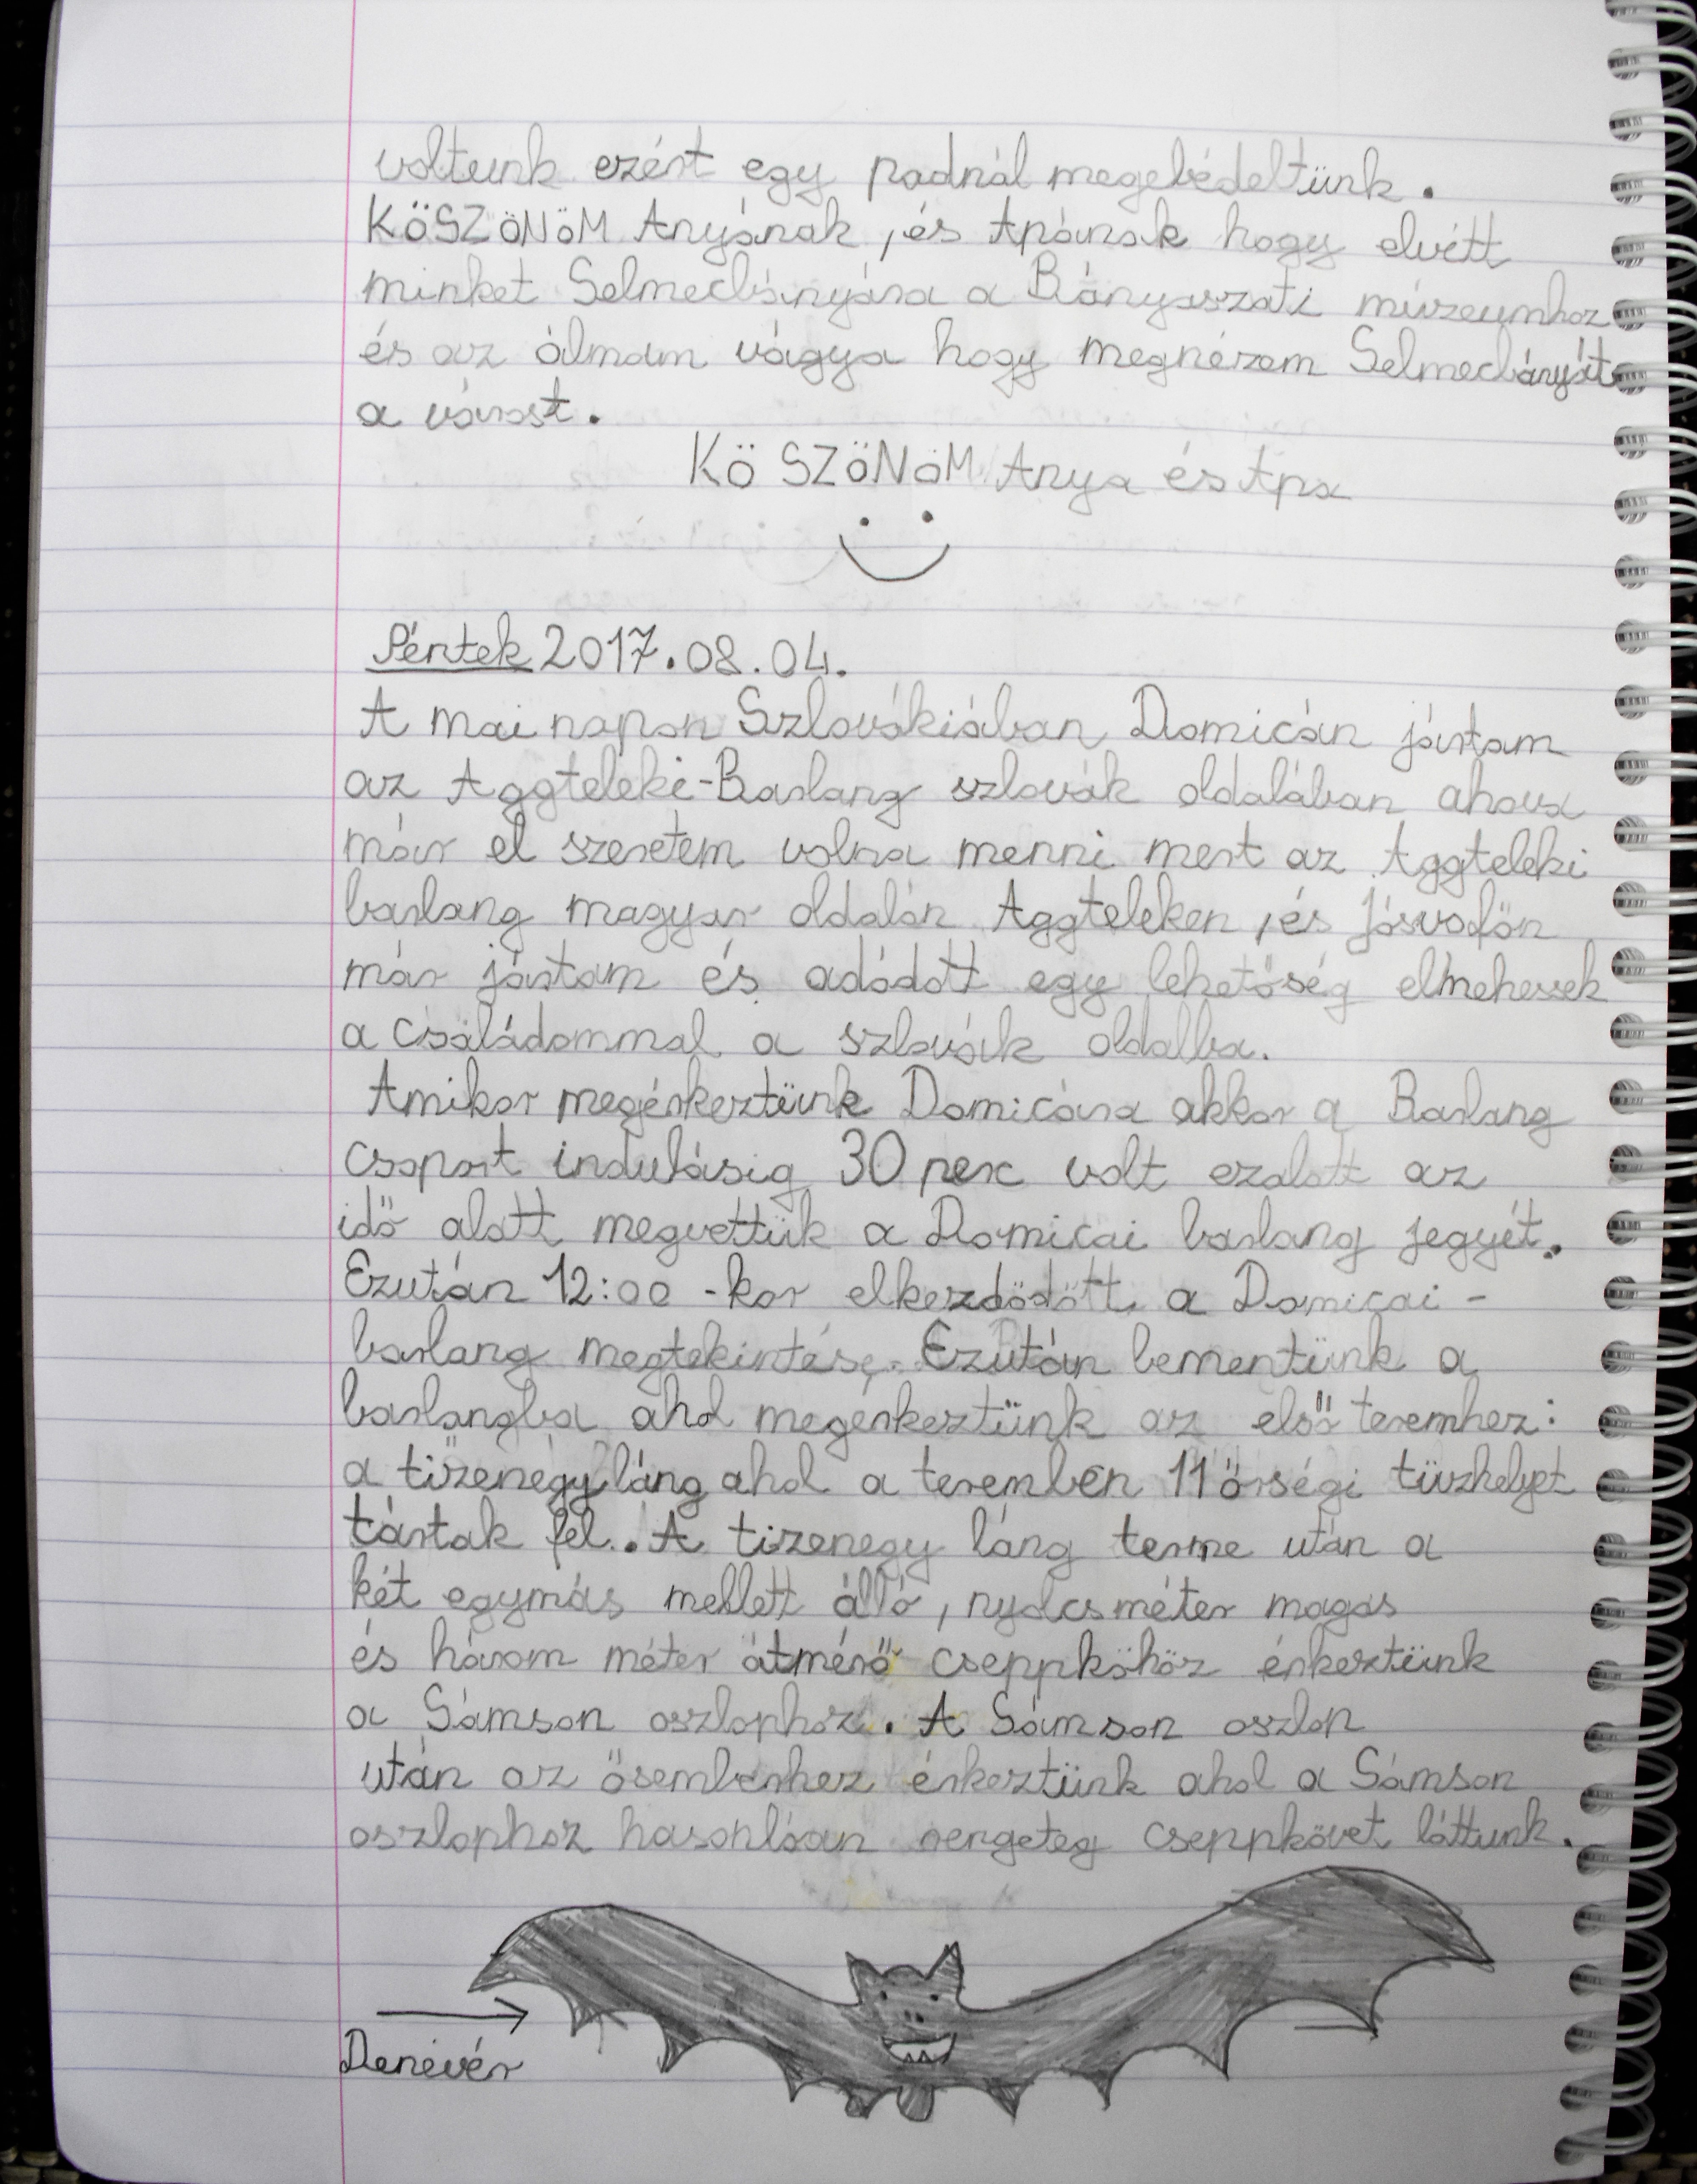 voltunk ezért egy padnál megebédeltünk.
KÖSZÖNÖM Anyának, és Apának hogy elvitt
minket Selmecbányára a Bányaszati múzeumhoz
és az álmam vágya hogy megnézem Selmecbányát
a várost.
KÖSZÖNÖM Anya és Apa
Péntek 2017.08.04.
A mai napon Szlovákiában Domicán jártam
az Aggteleki-Barlang szlovák oldalában ahova
már el szeretem volna menni mert az Aggteleki
barlang magyar oldalán Aggteleken, és Jósvafőn
már jártam és adódott egy lehetőség elmehessek
a családommal a szlovák oldalba.
Amikor megérkeztünk Domicára akkor a Barlang
csoport indulásig 30 perc volt ezalatt az
idő alatt megvettük a Domicai barlang jegyét.
Ezután 12:00 -kor elkezdődött a Domicai -
barlang megtekintése. Ezután lementünk a
barlangba ahol megerkeztünk az első teremhez:
a tizenegy láng ahol a teremben 11 őrségi tűzhelyet
tártak fel. A tizenegy láng terme után a
két egymás mellett álló, nyolcs méter magas
és három méter átmérő cseppkőhöz érkeztünk
a Sámson oszlophoz. A Sámson oszlop
után az ősemberhez érkeztünk ahol a Sámson
oszlophoz hasonlóan rengeteg cseppkövet láttunk.
Denevér